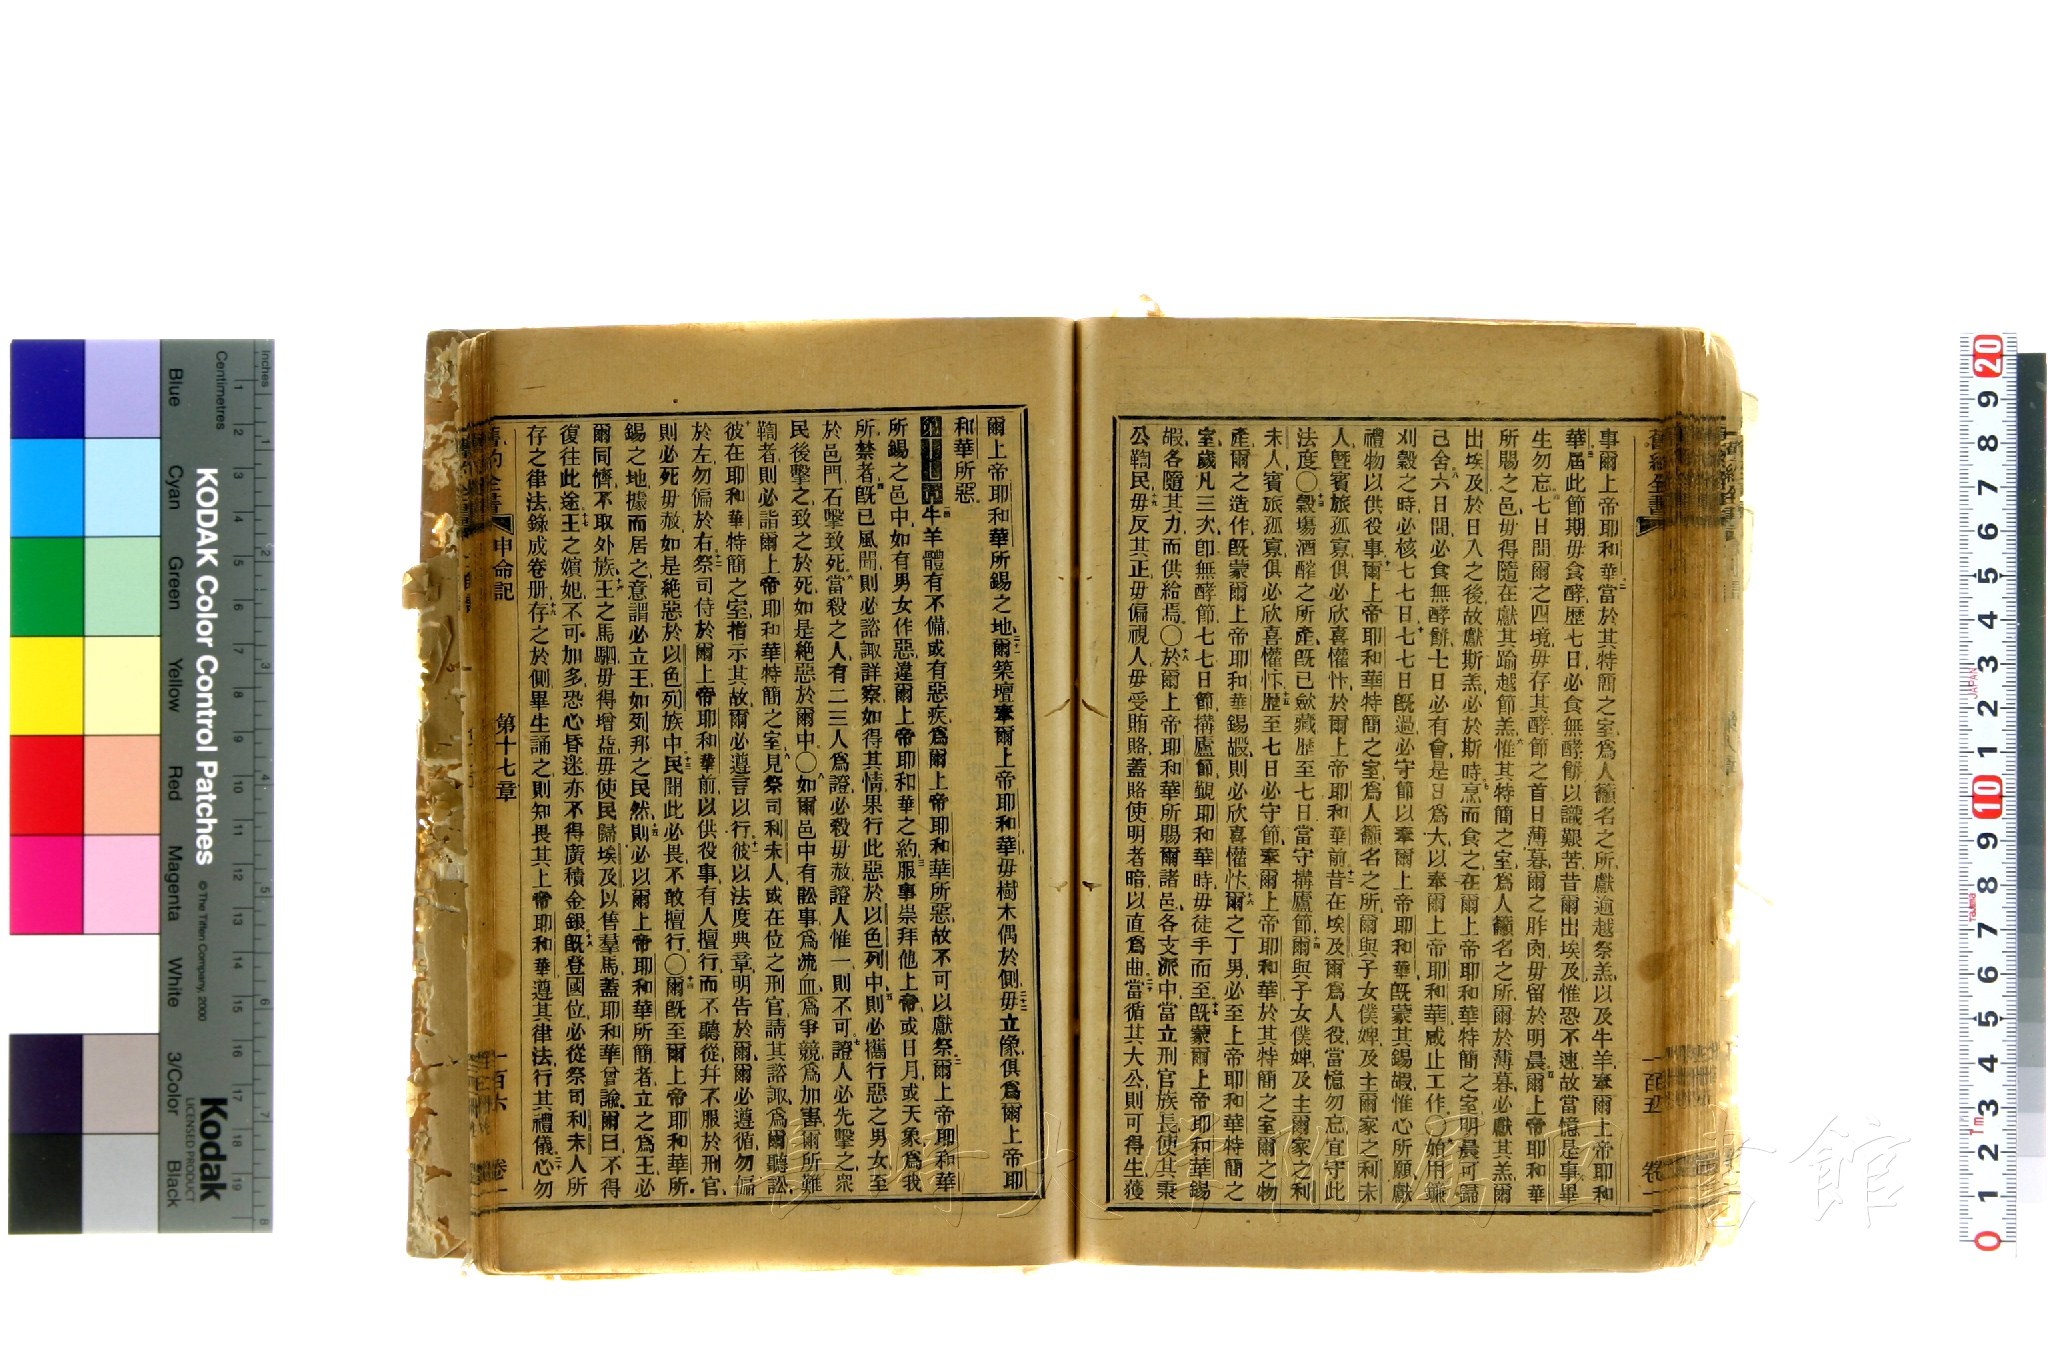 事爾上帝耶和華當於其特簡之室爲人籲名之所獻逾越祭羔以及牛羊奉爾上帝耶和
華屆此節期毋食酵歷七日必食無酵餅以識艱苦昔爾出埃及惟恐不速故當憶是事畢
生勿忘七日間爾之四境毋存其酵節之首日薄暮爾之胙肉毋留於明晨爾上帝耶和華
所賜之邑毋得隨在獻其踰越節羔惟其特簡之室爲人籲名之所爾於薄暮必獻其羔爾
出埃及於日入之後故獻斯羔必於斯時烹而食之在爾上帝耶和華特簡之室明晨可歸
己舍六日間必食無酵餅七日必有會是日爲大以奉爾上帝耶和華咸止工作〇始用鐮
刈穀之時必核七七日七七日旣過必守節以奉爾上帝耶和華旣蒙其錫嘏惟心所願獻
禮物以供役事爾上帝耶和華特簡之室爲人籲名之所爾與子女僕婢及主爾家之利未
人曁賓旅孤寡俱必欣喜懽忭於爾上帝耶和華前昔在埃及爾爲人役當憶勿忘宜守此
法度〇穀場酒醡之所產旣已斂藏歷至七日當守搆廬節爾與子女僕婢及主爾家之利
未人賓旅孤寡俱必欣喜懽忭歷至七日必守節奉爾上帝耶和華於其特簡之室爾之物
產爾之造作旣蒙爾上帝耶和華錫嘏則必欣喜懽忭爾之丁男必至上帝耶和華特簡之
室歲凡三次卽無酵節七七日節搆廬節覲耶和華時毋徒手而至旣蒙爾上帝耶和華錫
嘏各隨其力而供給焉〇於爾上帝耶和華所賜爾諸邑各支派中當立刑官族長使其秉
公鞫民毋反其正毋偏視人毋受賄賂蓋賂使明者暗以直爲曲當循其大公則可得生獲
一百五
卷一
爾上帝耶和華所錫之地爾築壇奉爾上帝耶和華毋樹木偶於側毋立像俱爲爾上帝耶
和華所惡
第十七章牛羊體有不備或有惡疾爲爾上帝耶和華所惡故不可以獻祭爾上帝耶和華
所錫之邑中如有男女作惡違爾上帝耶和華之約服事崇拜他上帝或日月或天象爲我
所禁者旣已風聞則必諮諏詳察如得其情果行此惡於以色列中則必攜行惡之男女至
於邑門石擊致死當殺之人有二三人爲證必殺毋赦證人惟一則不可證人必先擊之衆
民後擊之致之於死如是絕惡於爾中〇如爾邑中有訟事爲流血爲爭競爲加害爾所難
鞫者則必詣爾上帝耶和華特簡之室見祭司利未人或在位之刑官請其諮諏爲爾聽訟
彼在耶和華特簡之室指示其故爾必遵言以行彼以法度典章明告於爾爾必遵循勿偏
於左勿偏於右祭司侍於爾上帝耶和華前以供役事有人擅行而不聽從幷不服於刑官
則必死毋赦如是絕惡於以色列族中民聞此必畏不敢擅行〇爾旣至爾上帝耶和華所
錫之地據而居之意謂必立王如列邦之民然則必以爾上帝耶和華所簡者立之爲王必
爾同儕不取外族王之馬駟毋得增益毋使民歸埃及以售羣馬蓋耶和華曾諭爾曰不得
復往此途王之嬪妃不可加多恐心昏迷亦不得廣積金銀旣登國位必從祭司利未人所
存之律法錄成卷册存之於側畢生誦之則知畏其上帝耶和華遵其律法行其禮儀心勿
舊約全書 申命記 第十七章 一百六 卷一
KODAK Color Control Patches
© The Tiffen Company, 2000
Kodak
LICENSED PRODUCT
Inches
Centimetres
Blue
Cyan
Green
Yellow
Red
Magenta
White
3/Color
Black
JAPAN
長崎大学附属図書館